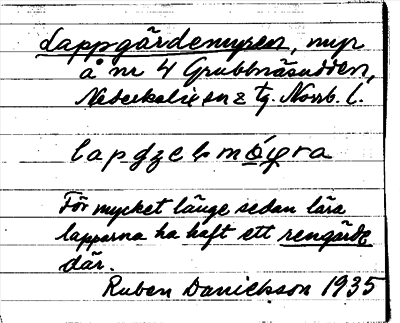 Lappgärdemyren, myr
å nr 4 Grubbnäsudden,
Nederkalix sn & tg. Norrb. l.
För mycket länge sedan lära
lapparna ha haft ett rengärde
där.
Ruben Danielsson 1935